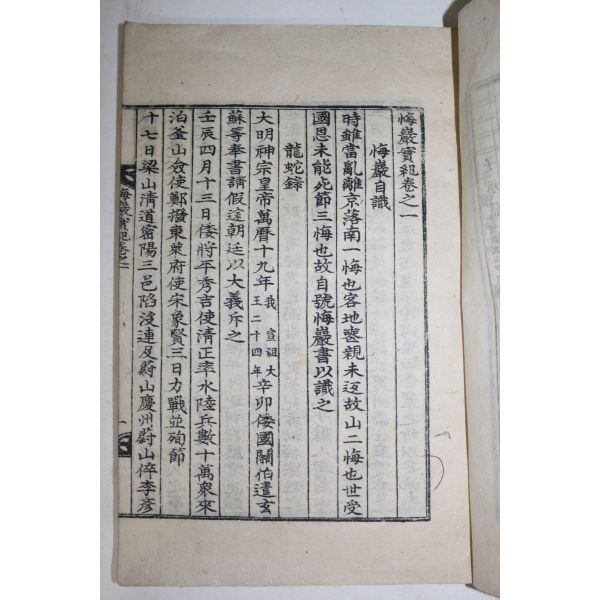 悔巖實紀卷之一
悔巖自識
時雖當亂離京落南一悔也客地喪親未返故山二悔也世受
國恩未能死節三悔也故自號悔巖書以識之
龍蛇錄
大明神宗皇帝萬曆十九年我 宣祖大王二十四年辛卯倭國關伯遣玄
蘇等奉書請假途朝廷以大義斥之
壬辰四月十三日倭將平秀吉使清正率水陸兵數十萬衆來
泊釜山僉使鄭撥東萊府使宋象賢三日力戰並殉節
十七日梁山清道密陽三邑陷沒連及蔚山慶州蔚山倅李彦
悔巖實紀卷之一
一